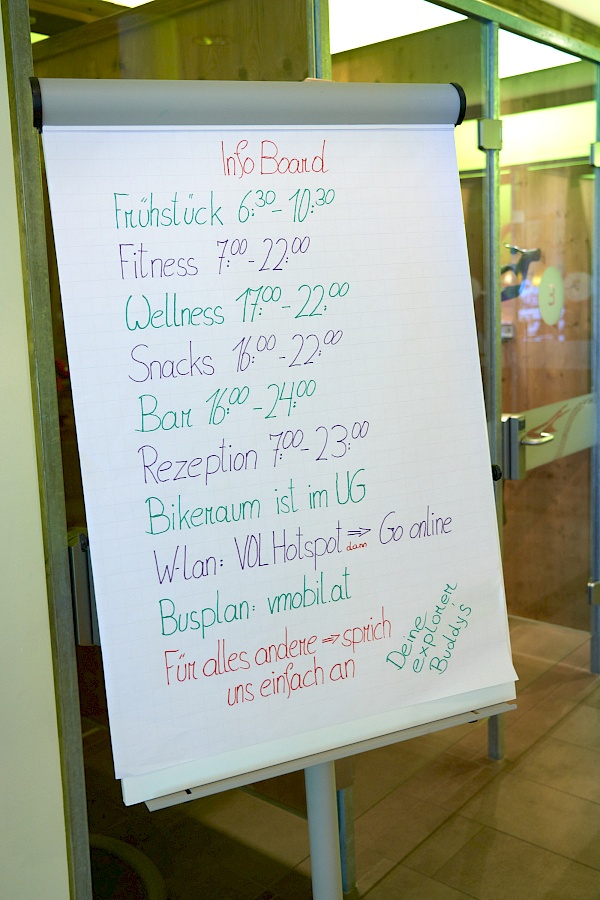 Info Board
Frühstück 6:30 - 10:30
Fitness 7:00 - 22:00
Wellness 17:00 - 22:00
Snacks 16:00 - 22:00
Bar 16:00 - 24:00
Rezeption 7:00 - 23:00
Bikeraum ist im UG
W-lan: VOL Hotspot ⇒ dann Go online
Busplan: vmobil.at
Für alles andere ⇒ sprich
uns einfach an
Deine
explorer
Buddy's
3